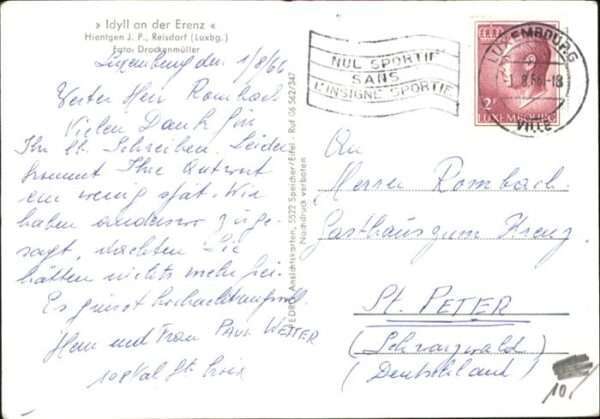 » Idyll an der Erenz «
Hientgen J. P., Reisdorf (Luxbg.)
Foto: Drockenmüller
Luxemburg den 1/8/66
Werter Herr Rombach
Vielen Dank für
Ihr Schreiben. Leider
kommt Ihre Antwort
ein wenig spät. Wir
haben anderswo zuge-
sagt, dachten Sie
hätten nichts mehr frei.
Es grüsst hochachtungsvoll
Herr und Frau PAUL WETTER
108 Val Ste Croix
Ansichtskarten, 5522 Speicher/Eifel - Ruf 06 562/347
Nachdruck verboten
NUL SPORTIF
SANS
L'INSIGNE SPORTIF
LUXEMBOURG
VILLE
2F
LUXEMBOURG
An
Herrn Rombach
Gasthaus zum Kreuz
St. PETER
(Schwarzwald)
(Deutschland)
10